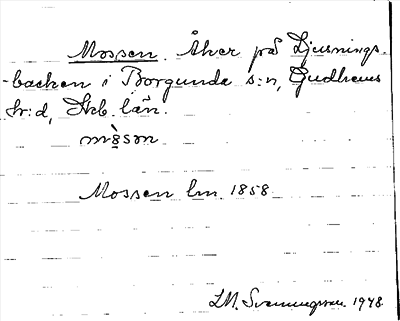 Mossen. Åker på Ljusnings-
backen i Borgunda s:n, Gudhems
h:d, Skb. län.
mòsən
Mossen lm. 1858
LM. Svenungsson 1948